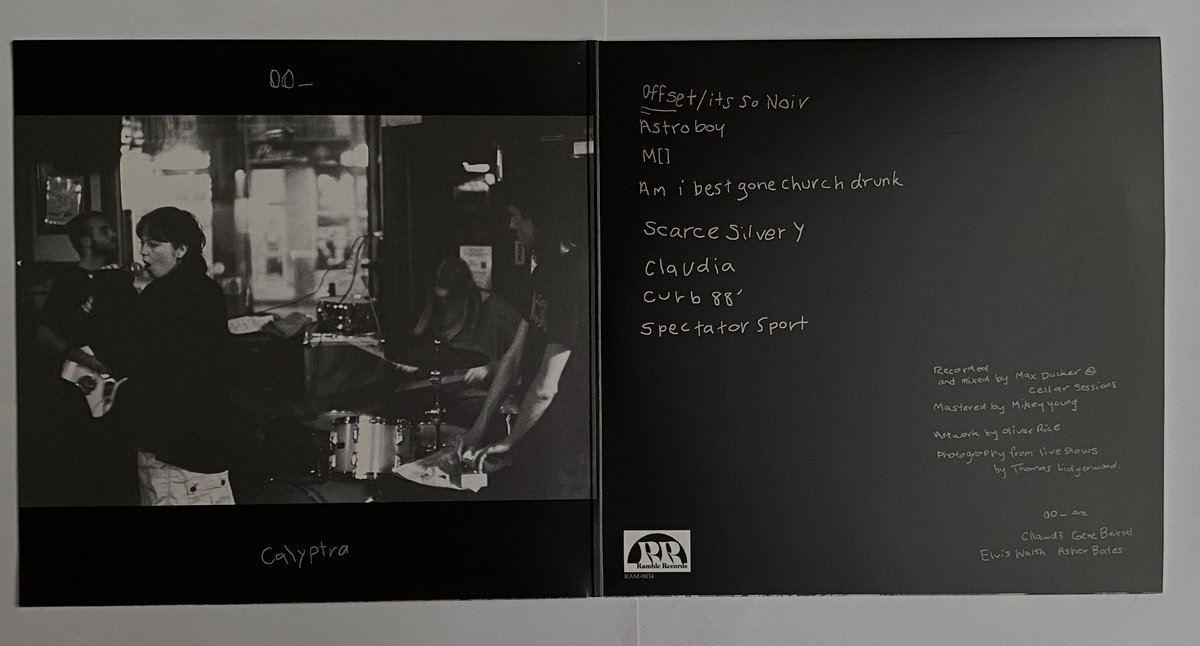 OO_
Calyptra
Offset/its so Noir
Astroboy
M[]
Am i best gone church drunk
Scarce Silver Y
Claudia
Curb 88'
Spectator Sport
Recorded
and mixed by Max Ducker @
Cellar Sessions
Mastered by Mikey young
Artwork by Oliver Rice
Photography from live shows
by Thomas Lidgerwood.
OO_ are
Clawd3 Gene Beissel
Elvis Walsh Asher Bates
RR
Ramble Records
RAM-0034